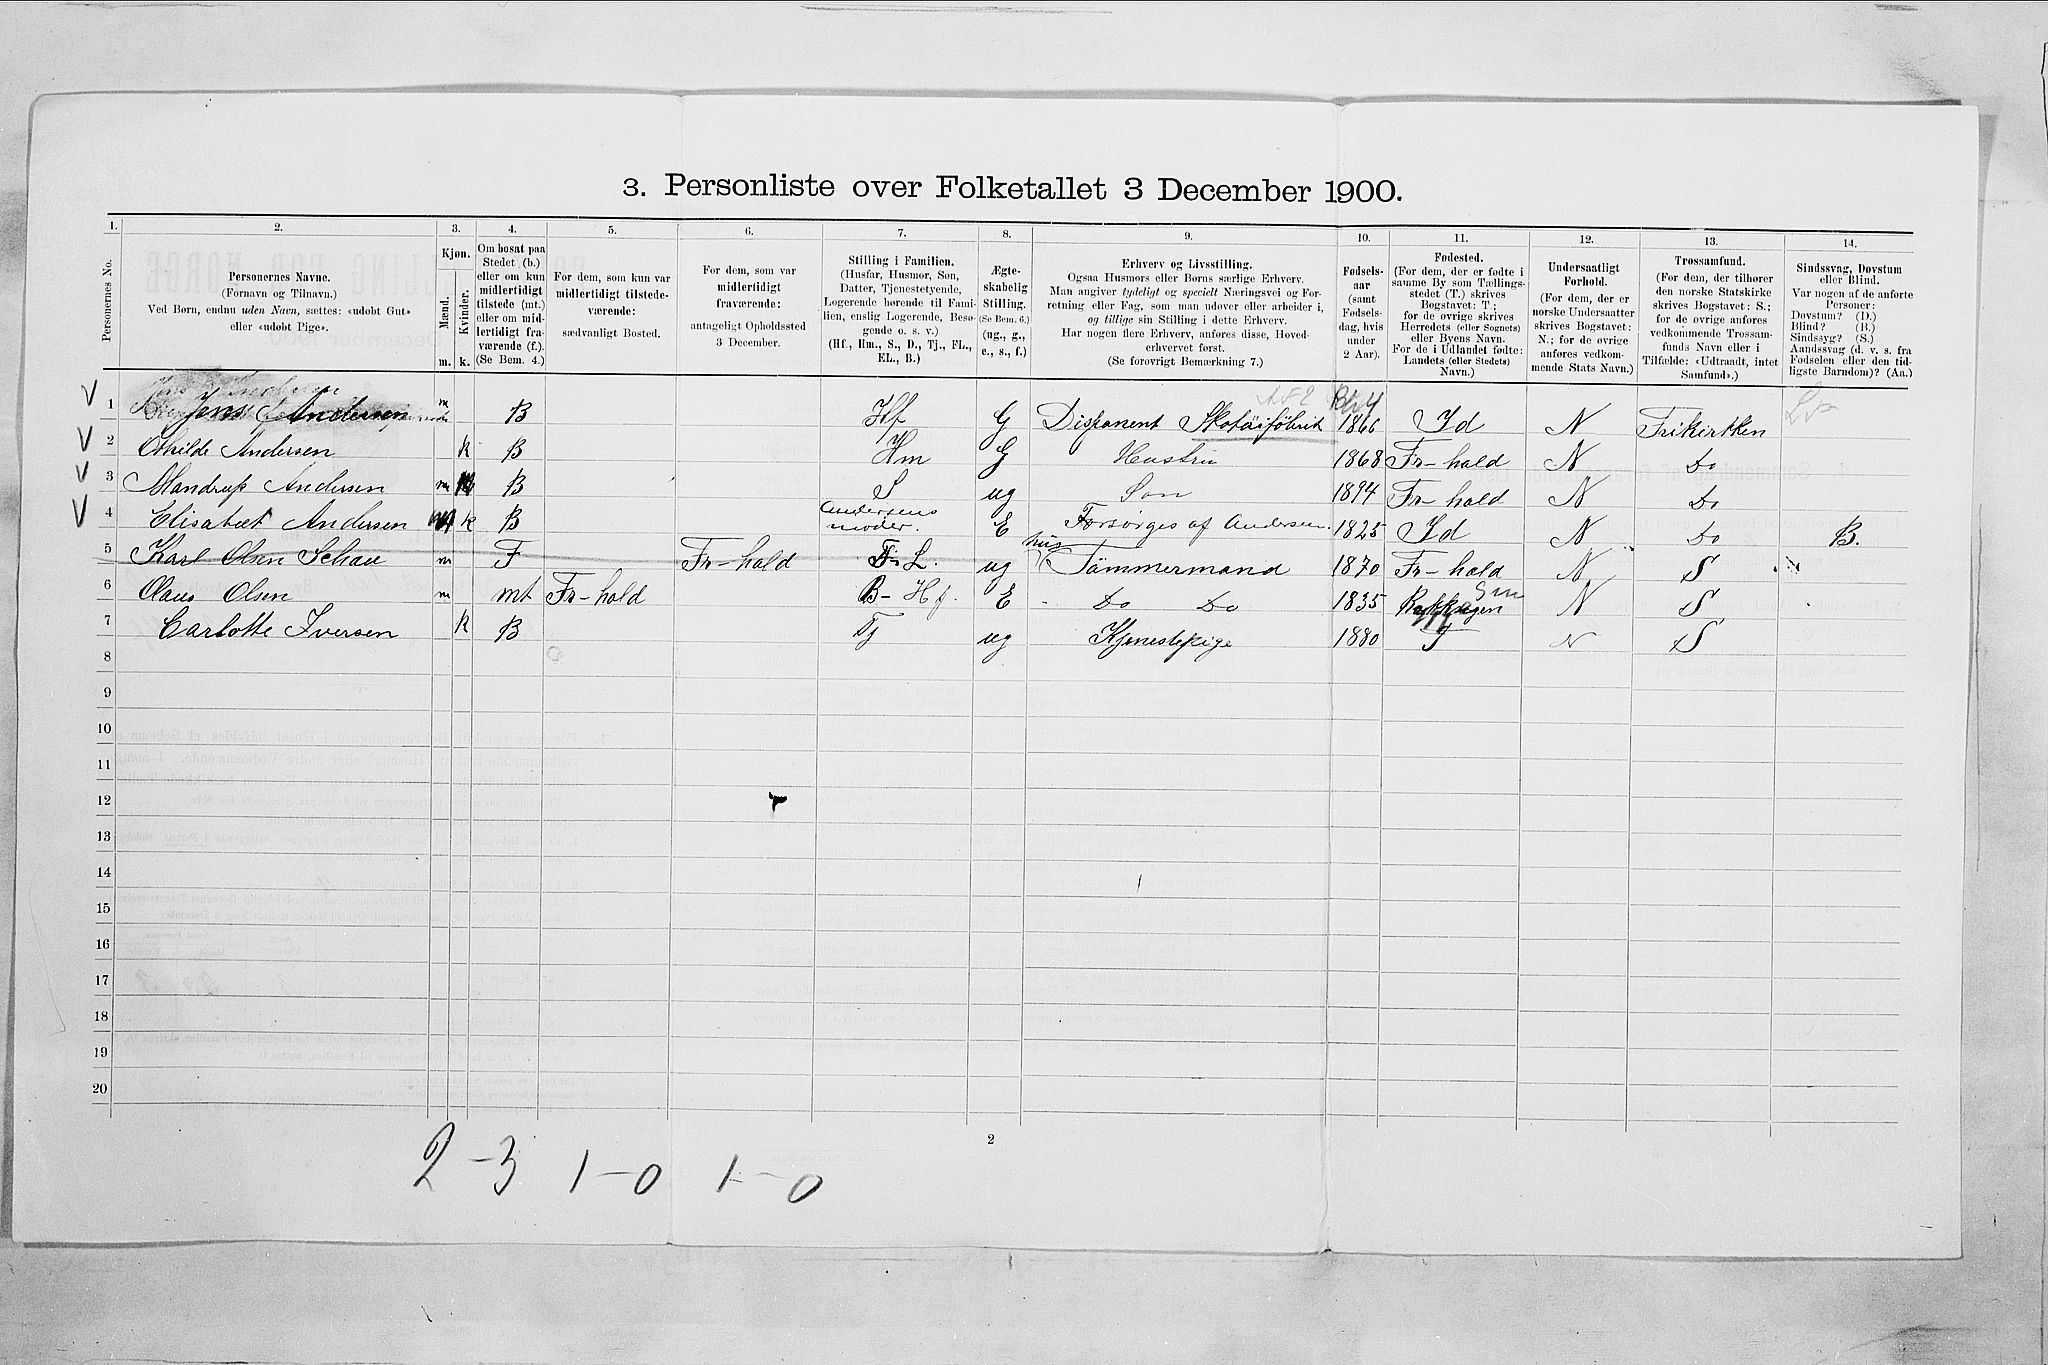 3. Personliste over Folketallet 3 December 1900.
1. 2. 3. 4. 5. 6. 7. 8. 9. 10. 11. 12. 13. 14.
Personernes No.
Personernes Navne.
(Fornavn og Tilnavn.)
Ved Børn, endnu uden Navn, sættes: «udøbt Gut»
eller «udøbt Pige».
Kjøn.
Mænd.
Kvinder.
m. k.
Om bosat paa
Stedet (b.)
eller om kun
midlertidigt
tilstede (mt.)
eller om mid-
lertidigt fra-
værende (f.).
(Se Bem. 4.)
For dem, som kun var
midlertidigt tilstede-
værende:
sædvanligt Bosted.
For dem, som var
midlertidigt
fraværende:
antageligt Opholdssted
3 December.
Stilling i Familien.
(Husfar, Husmor, Søn,
Datter, Tjenestetyende,
Logerende hørende til Fami-
lien, enslig Logerende, Besø-
gende o. s. v.)
(Hf., Hm., S., D., Tj., FL.,
EL., B.)
Ægte-
skabelig
Stilling.
(Se Bem. 6.)
(ug., g.,
e., s., f.)
Erhverv og Livsstilling.
Ogsaa Husmors eller Børns særlige Erhverv.
Man angiver tydeligt og specielt Næringsvei og For-
retning eller Fag, som man udøver eller arbeider i,
og tillige sin Stilling i dette Erhverv.
Har nogen flere Erhverv, anføres disse, Hoved-
erhvervet først.
(Se forøvrigt Bemærkning 7.)
Fødsels-
aar
(samt
Fødsels-
dag, hvis
under
2 Aar).
Fødested.
(For dem, der er fødte i
samme By som Tællings-
stedet (T.) skrives
Bogstavet: T;
for de øvrige skrives
Herredets (eller Sognets)
eller Byens Navn.
For de i Udlandet fødte:
Landets (eller Stedets)
Navn.)
Undersaatligt
Forhold.
(For dem, der er
norske Undersaatter
skrives Bogstavet:
N.; for de øvrige
anføres vedkom-
mende Stats Navn.)
Trossamfund.
(For dem, der tilhører
den norske Statskirke
skrives Bogstavet: S.;
for de øvrige anføres
vedkommende Trossam-
funds Navn eller i
Tilfælde: «Udtraadt, intet
Samfund».)
Sindssvag, Døvstum
eller Blind.
Var nogen af de anførte
Personer:
Døvstum? (D.)
Blind? (B.)
Sindssyg? (S.)
Aandssvag (d. v. s. fra
Fødselen eller den tid-
ligste Barndom)? (Aa.)
V 1 Jens Andersen m B Hf G Disponent Skotøiføbrik 1866 Id N Frikirkken
V 2 Othilde Andersen k B Hm G Hustru 1868 Fr-hald N Do
V 3 Mandrup Andersen m B S ug Søn 1894 Fr-hald N Do
V 4 Elisabet Andersen k B Andersens moder. E Forsørges af Andersen. 1825 Id N Do B.
5 Karl Olsen Schau m F Fr-hald L. ug hus Tömmermand 1870 Fr-hald N S
6 Claus Olsen m mt Fr-hald B-Hf. E Do Do 1835 N S
7 Carlotte Iversen k B Tj ug Kjenestepige 1880 T N S
8
9
10
11
12
13
14
15
16
17
18
19
20
2
2-3 1-0 1-0